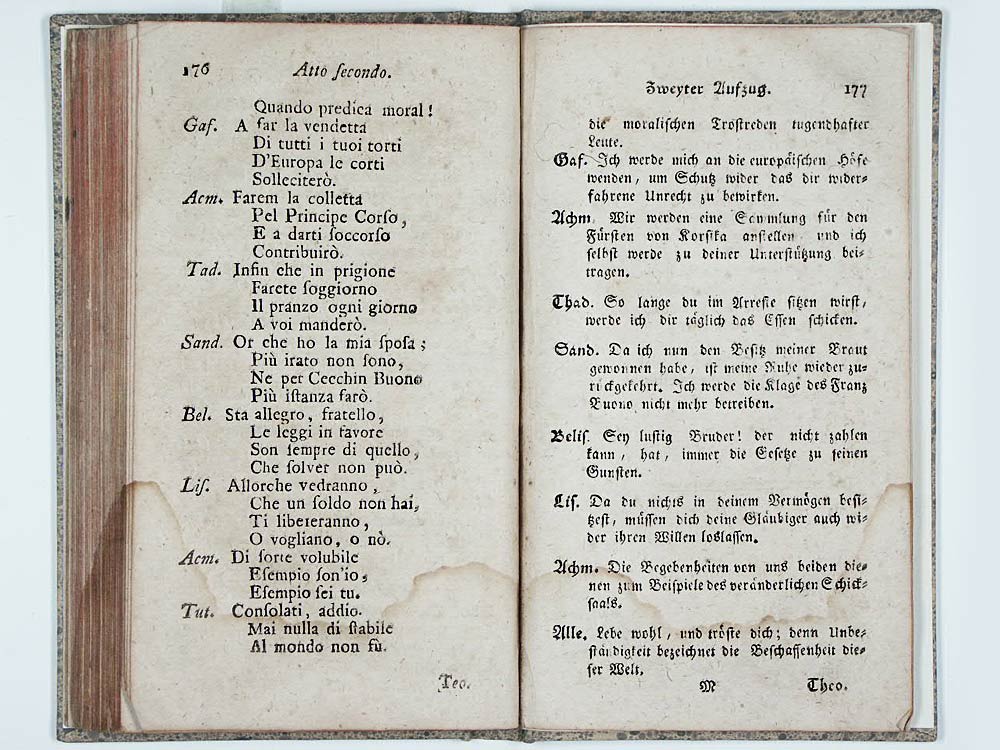 176 Atto ſecondo.
Quando predica moral!
Gaſ. A far la vendetta
Di tutti i tuoi torti
D'Europa le corti
Solleciterò.
Acm. Farem la colletta
Pel Principe Corſo,
E a darti ſoccorſo
Contribuirò.
Tad. Infin che in prigione
Farete ſoggiorno
Il pranzo ogni giorno
A voi manderò.
Sand. Or che ho la mia ſpoſa;
Più irato non ſono,
Ne per Cecchin Buono
Più iſtanza farò.
Bel. Sta allegro, fratello,
Le leggi in favore
Son ſempre di quello,
Che ſolver non può.
Liſ. Allorche vedranno,
Che un ſoldo non hai,
Ti libereranno,
O vogliano, o nò.
Acm. Di ſorte volubile
Eſempio ſon'io,
Eſempio ſei tu.
Tut. Conſolati, addio.
Mai nulla di ſtabile
Al mondo non fù.
Teo.
Zweyter Aufzug. 177
die moraliſchen Troſtreden tugendhafter
Leute.
Gaſ. Ich werde mich an die europäiſchen Höfe
wenden, um Schutz wider das dir wider-
fahrene Unrecht zu bewirken.
Achm. Wir werden eine Sammlung für den
Fürſten von Korſika anſtellen und ich
ſelbſt werde zu deiner Unterſtützung bei-
tragen.
Thad. So lange du im Arreſte ſitzen wirſt,
werde ich dir täglich das Eſſen ſchicken.
Sand. Da ich nun den Beſitz meiner Braut
gewonnen habe, iſt meine Ruhe wieder zu-
rückgekehrt. Ich werde die Klage des Franz
Buono nicht mehr betreiben.
Beliſ. Sey luſtig Bruder! der nicht zahlen
kann, hat, immer die Geſetze zu ſeinen
Gunſten.
Liſ. Da du nichts in deinem Vermögen beſi-
tzeſt, müſſen dich deine Gläubiger auch wi-
der ihren Willen loslaſſen.
Achm. Die Begebenheiten von uns beiden die-
nen zum Beiſpiele des veränderlichen Schick-
ſaals.
Alle. Lebe wohl, und tröſte dich; denn Unbe-
ſtändigkeit bezeichnet die Beſchaffenheit die-
ſer Welt.
M Theo.